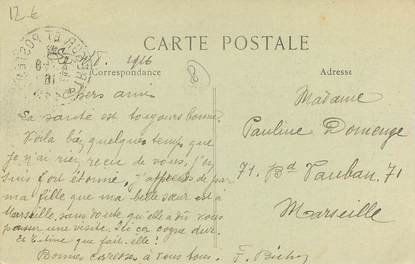 12 €
CARTE POSTALE
Correspondance
Adresse
1916
8
Chers amis
La santé est toujours bonne.
Voilà bien quelques temps que
je n'ai rien recu de vous, j'en
suis fort étonné, j'apprends par
ma fille que ma belle sœur est à
Marseille, sans doute qu'elle a dû vous
passer une visite. Ici ca cogne dur.
Et Titine que fait-elle!
Bonnes caresses à vous tous. F.
Madame
Pauline Domenge
71. Bd Vauban. 71
Marseille